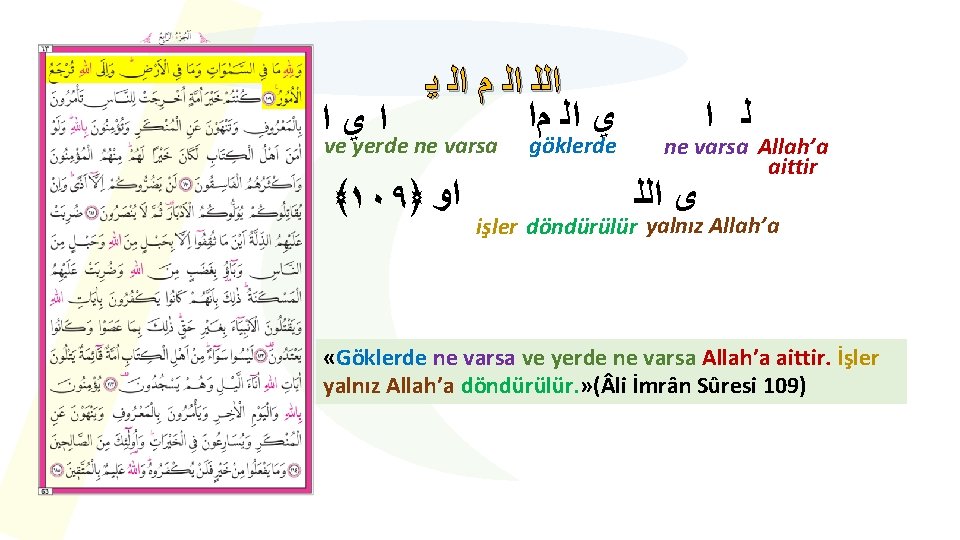 اَلْجُزْءُ الرَّابِعُ
٦٣
وَلِلّٰهِ مَا فِي السَّمٰوَاتِ وَمَا فِي الْاَرْضِۜ وَاِلَى اللّٰهِ تُرْجَعُ
الْاُمُورُ۟ ﴿١٠٩﴾ كُنْتُمْ خَيْرَ اُمَّةٍ اُخْرِجَتْ لِلنَّاسِ تَأْمُرُونَ
بِالْمَعْرُوفِ وَتَنْهَوْنَ عَنِ الْمُنْكَرِ وَتُؤْمِنُونَ بِاللّٰهِۜ وَلَوْ
اٰمَنَ اَهْلُ الْكِتَابِ لَكَانَ خَيْرًا لَهُمْۜ مِنْهُمُ الْمُؤْمِنُونَ
وَاَكْثَرُهُمُ الْفَاسِقُونَ ﴿١١٠﴾ لَنْ يَضُرُّوكُمْ اِلَّٓا اَذًىۜ وَاِنْ
يُقَاتِلُوكُمْ يُوَلُّوكُمُ الْاَدْبَارَ۠ ثُمَّ لَا يُنْصَرُونَ ﴿١١١﴾ ضُرِبَتْ
عَلَيْهِمُ الذِّلَّةُ اَيْنَ مَا ثُقِفُٓوا اِلَّا بِحَبْلٍ مِنَ اللّٰهِ وَحَبْلٍ مِنَ
النَّاسِ وَبَٓاؤُ۫ بِغَضَبٍ مِنَ اللّٰهِ وَضُرِبَتْ عَلَيْهِمُ
الْمَسْكَنَةُۜ ذٰلِكَ بِاَنَّهُمْ كَانُوا يَكْفُرُونَ بِاٰيَاتِ اللّٰهِ
وَيَقْتُلُونَ الْاَنْبِيَٓاءَ بِغَيْرِ حَقٍّۜ ذٰلِكَ بِمَا عَصَوْا وَكَانُوا
يَعْتَدُونَ ﴿١١٢﴾ لَيْسُوا سَوَٓاءًۜ مِنْ اَهْلِ الْكِتَابِ اُمَّةٌ قَٓائِمَةٌ يَتْلُونَ
اٰيَاتِ اللّٰهِ اٰنَٓاءَ الَّيْلِ وَهُمْ يَسْجُدُونَ ﴿١١٣﴾ يُؤْمِنُونَ
بِاللّٰهِ وَالْيَوْمِ الْاٰخِرِ وَيَأْمُرُونَ بِالْمَعْرُوفِ وَيَنْهَوْنَ عَنِ
الْمُنْكَرِ وَيُسَارِعُونَ فِي الْخَيْرَاتِۜ وَاُو۬لٰٓئِكَ مِنَ الصَّالِحِينَ
﴿١١٤﴾ وَمَا يَفْعَلُوا مِنْ خَيْرٍ فَلَنْ يُكْفَرُوهُۜ وَاللّٰهُ عَلِيمٌ بِالْمُتَّقِينَ ﴿١١٥﴾
63
اﻟﻠ اﻟ ﻡ اﻟ ﻳ
ﻟ ا ﻱ اﻟ ﻡا ا ﻱ ا
ve yerde ne varsa göklerde ne varsa Allah’a
aittir
ﻯ اﻟﻠ اﻭ ﴿١٠٩﴾
işler döndürülür yalnız Allah’a
«Göklerde ne varsa ve yerde ne varsa Allah’a aittir. İşler
yalnız Allah’a döndürülür.»(Âli İmrân Sûresi 109)